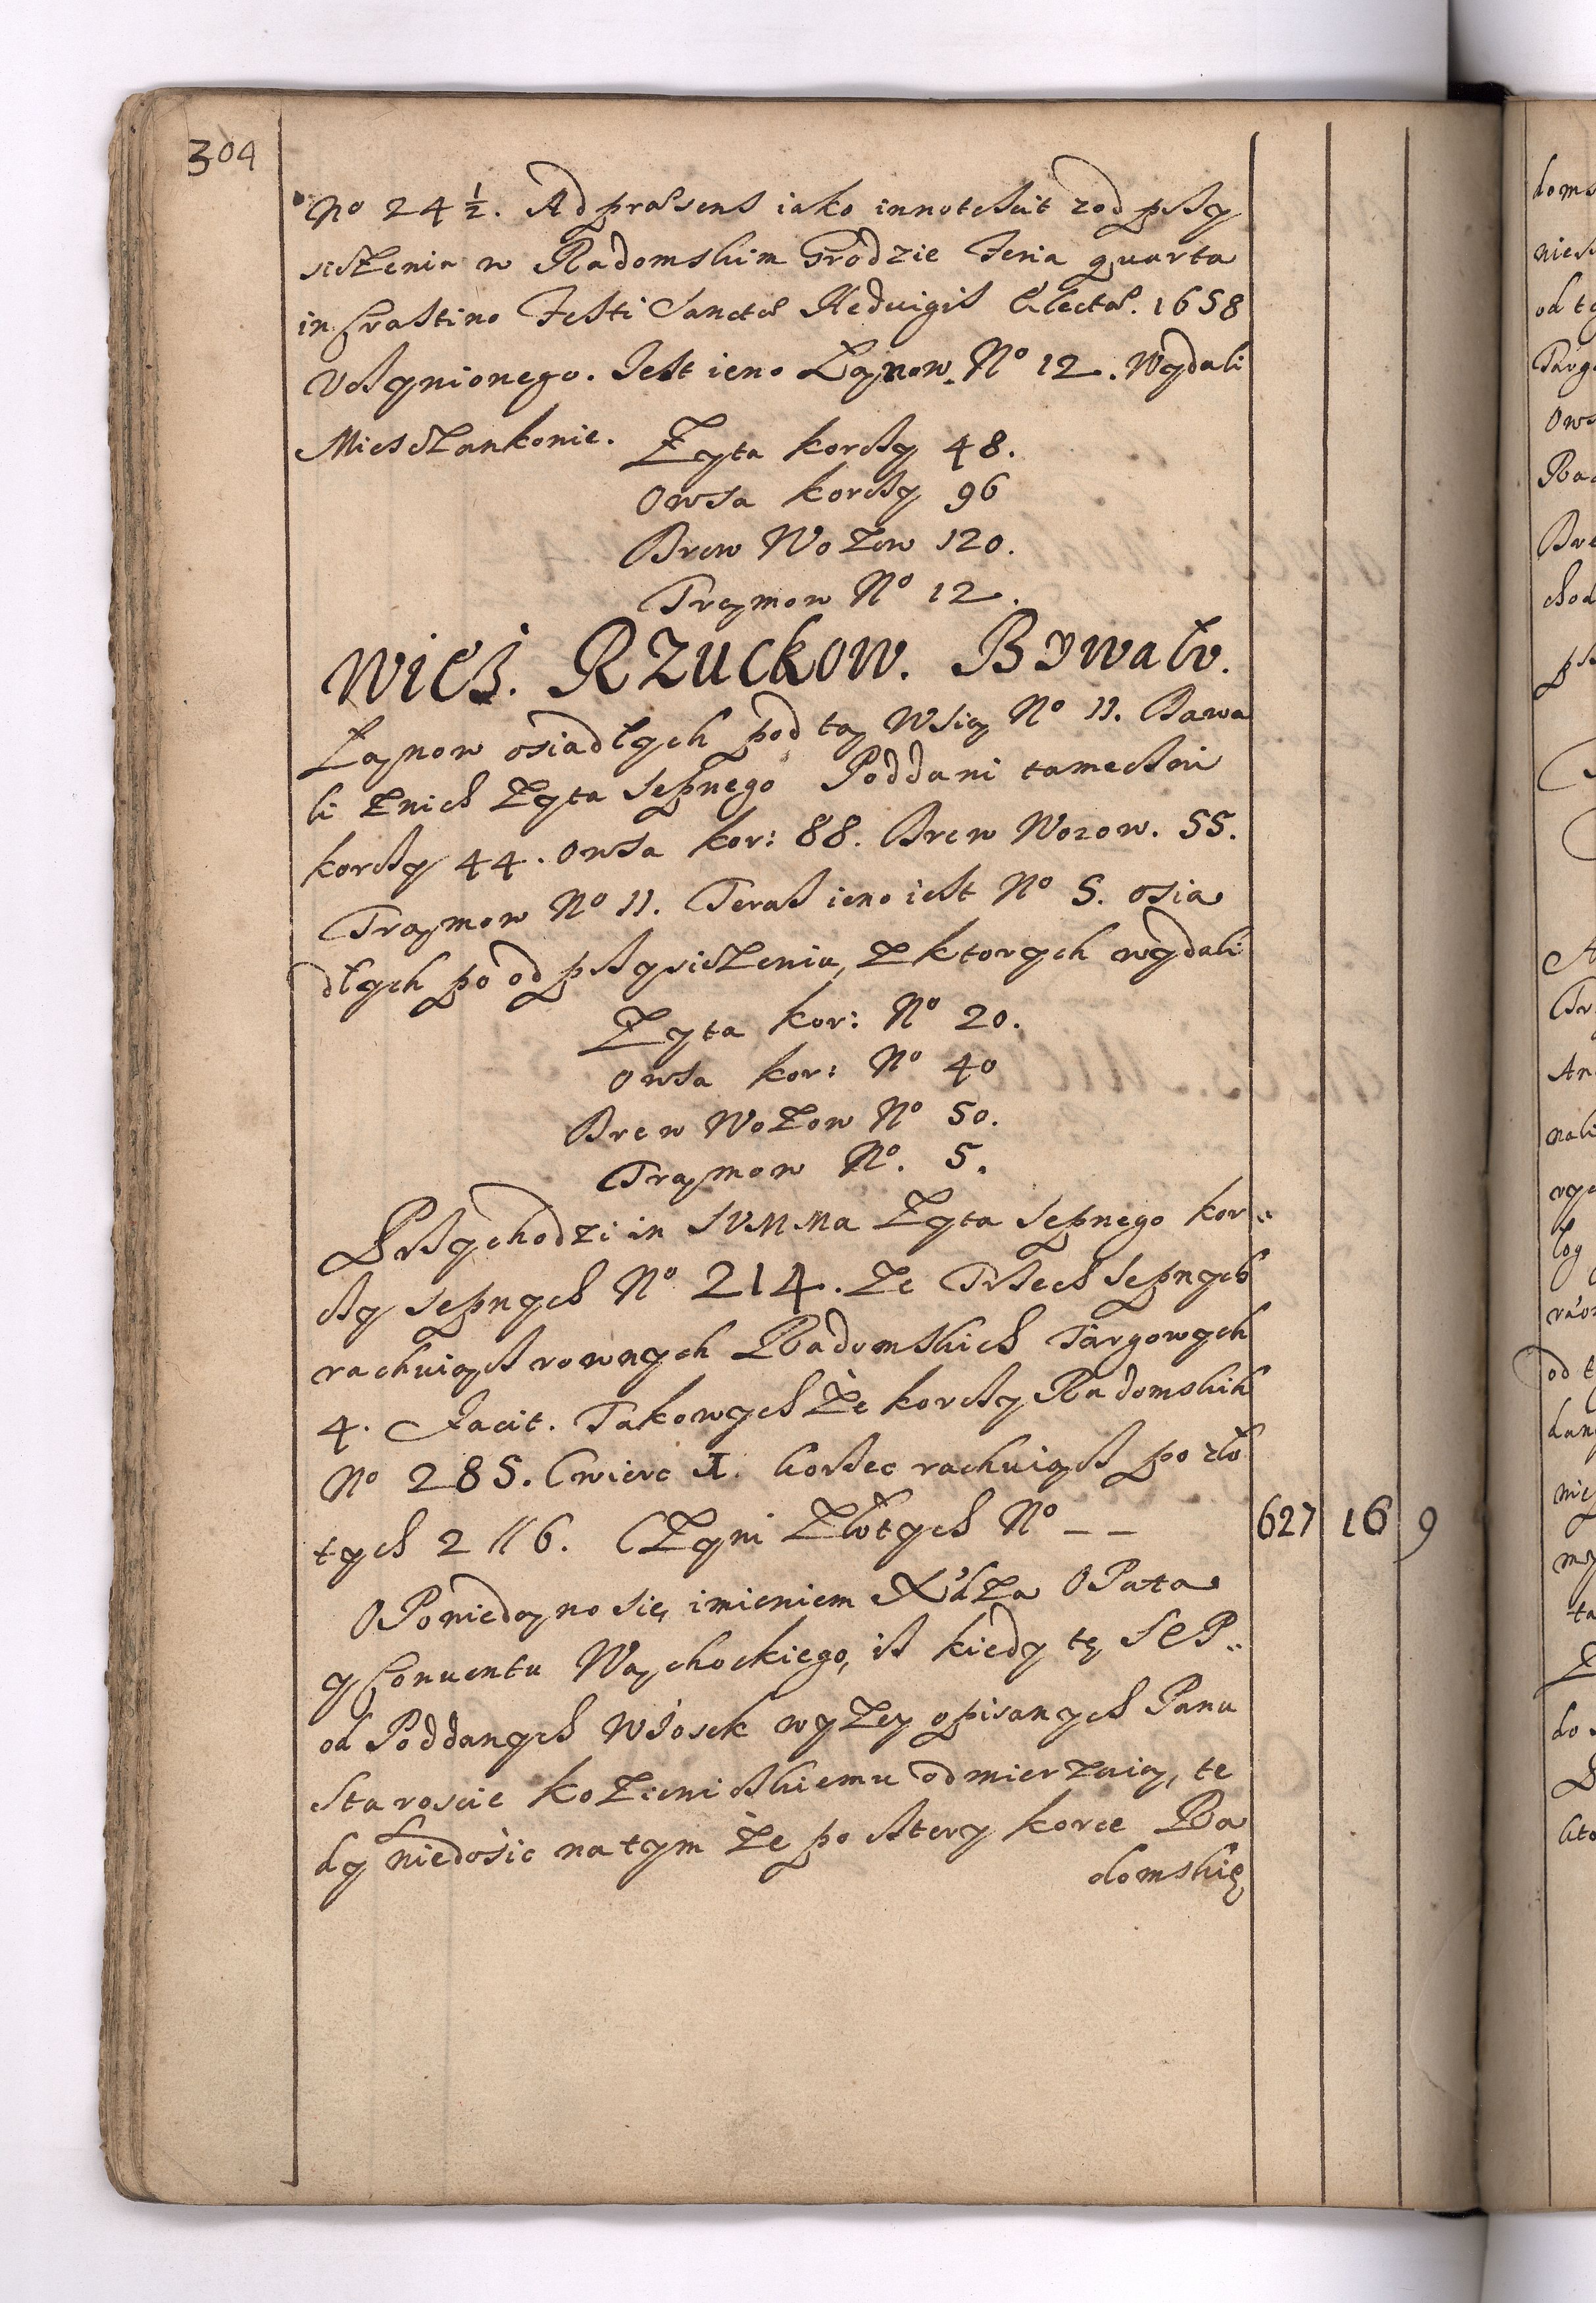 304
No 24 ½. Ad præsens iako innotescit zod przy
siężenia w Radomskim Grodzie Feria quarta
in Crastino Festi Sanctæ Heduigis Electæ. 1658
Vczynionego. Jest ieno Łanow. No 12. Wydali
Miesczankowie. Żyta korczy 48.
Owsa korczy 96
Drew Wozow 120.
Traymow No 12.
Wieś. Rzuckow. Bywało.
Łanow osiadłych pod tą Wsią No 11. Dawa
li znich Żyta sepnego Poddani tameczni
korczy 44. Owsa kor: 88. Drew Wozow. 55.
Traymow No 11. Teraz ieno iest No 5. osia
dłych po odprzysiężeniu, z ktorych wydali
Żyta kor: No 20.
Owsa kor: No 40
Drew Wozow No 50.
Traymow No. 5.
Przychodzi in SVMMA Żyta Sepnego kor„
czy sepnych No 214. Ze Trzech Sepnych
rachuiącz rownych Radomskich Targowych
4. Facit. Takowych że korczy Radomskich
No 285. Cwierc 1. korzec rachuiącz po zło
tych 2 // 6. Czyni Złotych No – – 627 16 9
OPowiedano się imieniem Xdza OPata
y Conuentu Wąchockiego, iż kiedy tę SEP„
od Poddanych Wiosek wyżey opisanych Panu
Staroscie Kozienickiemu odmierzaią, te
dy niedosic natym że po cztery korce Ra
domskię